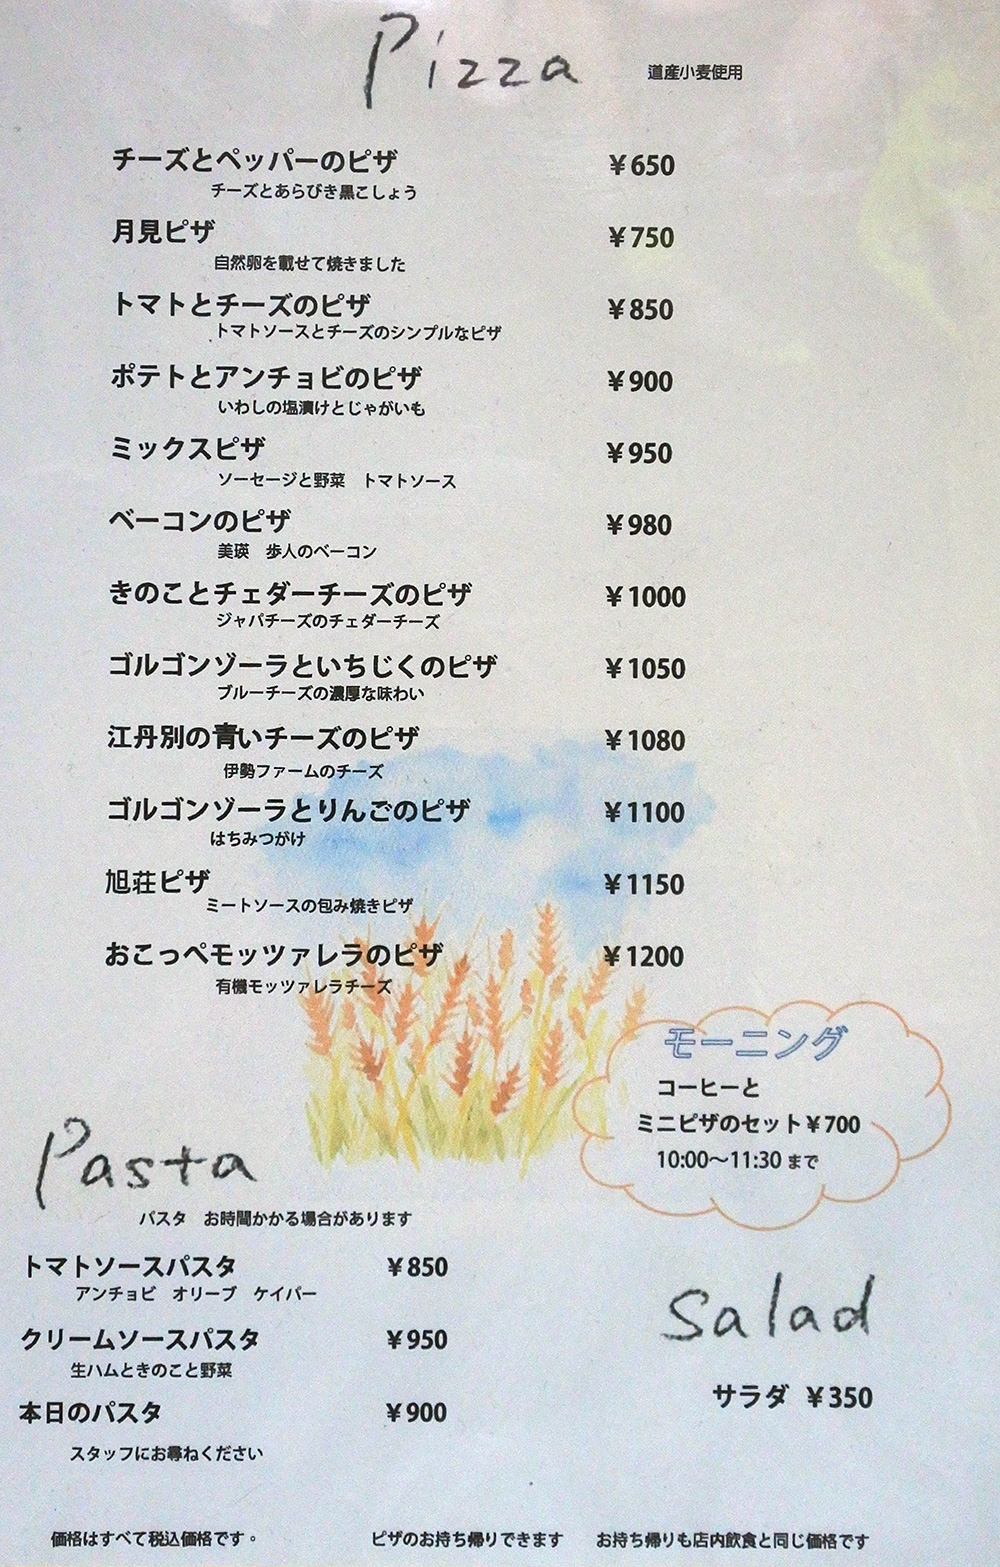 Pizza 道産小麦使用
チーズとペッパーのピザ ￥650
チーズとあらびき黒こしょう
月見ピザ ￥750
自然卵を載せて焼きました
トマトとチーズのピザ ￥850
トマトソースとチーズのシンプルなピザ
ポテトとアンチョビのピザ ￥900
いわしの塩漬けとじゃがいも
ミックスピザ ￥950
ソーセージと野菜　トマトソース
ベーコンのピザ ￥980
美瑛　歩人のベーコン
きのことチェダーチーズのピザ ￥1000
ジャパチーズのチェダーチーズ
ゴルゴンゾーラといちじくのピザ ￥1050
ブルーチーズの濃厚な味わい
江丹別の青いチーズのピザ ￥1080
伊勢ファームのチーズ
ゴルゴンゾーラとりんごのピザ ￥1100
はちみつがけ
旭荘ピザ ￥1150
ミートソースの包み焼きピザ
おこっぺモッツァレラのピザ ￥1200
有機モッツァレラチーズ
モーニング
コーヒーと
ミニピザのセット￥700
10:00〜11:30 まで
Pasta
パスタ　お時間かかる場合があります
トマトソースパスタ ￥850
アンチョビ　オリーブ　ケイパー
クリームソースパスタ ￥950
生ハムときのこと野菜
本日のパスタ ￥900
スタッフにお尋ねください
Salad
サラダ ￥350
価格はすべて税込価格です。 ピザのお持ち帰りできます　お持ち帰りも店内飲食と同じ価格です